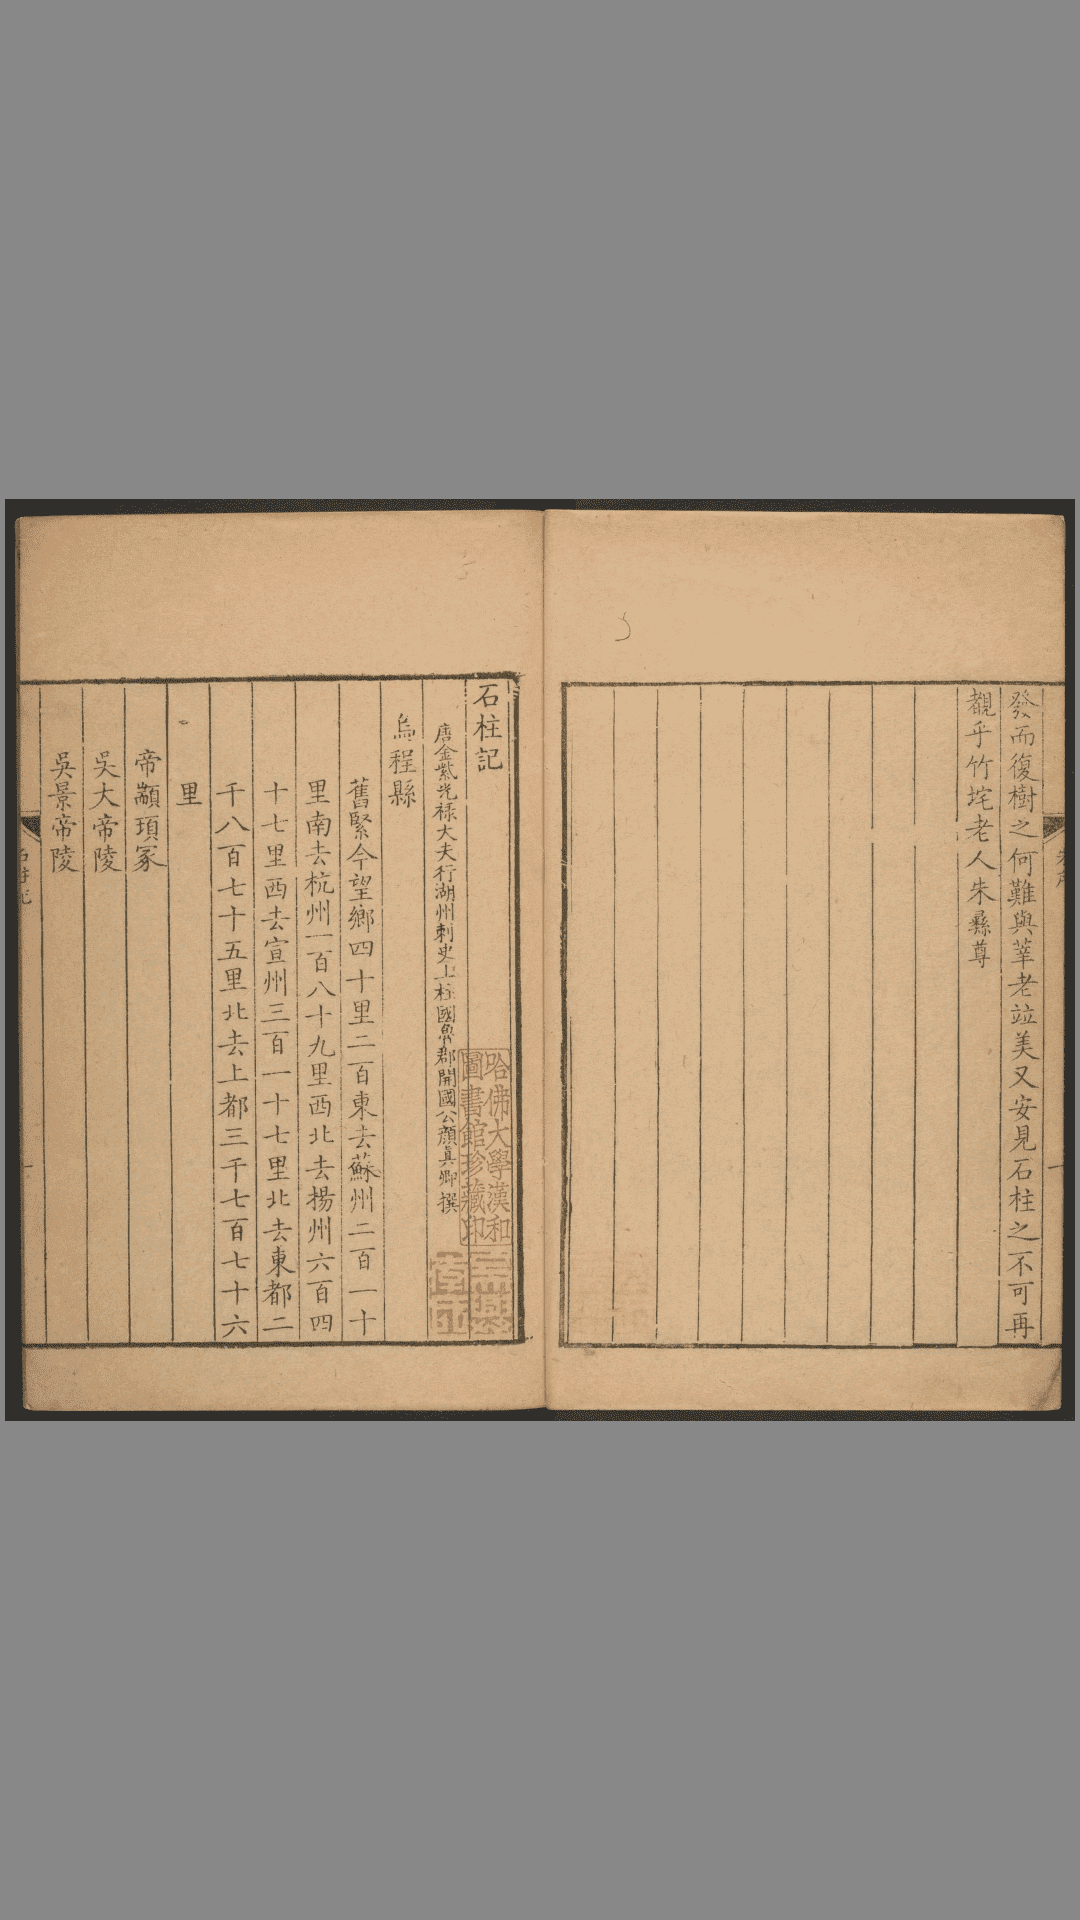 發而復樹之何難與莘老竝美又安見石柱之不可再
覩乎竹垞老人朱彝尊
石柱記
唐金紫光禄大夫行湖州刺史上柱國魯郡開國公顔真卿撰
烏程縣
舊緊今望鄉四十里二百東去蘇州二百一十
里南去杭州一百八十九里西北去揚州六百四
十七里西去宣州三百一十七里北去東都二
千八百七十五里北去上都三千七百七十六
里
帝顓頊冢
吳大帝陵
吳景帝陵
哈佛大學漢和
圖書館珍藏印